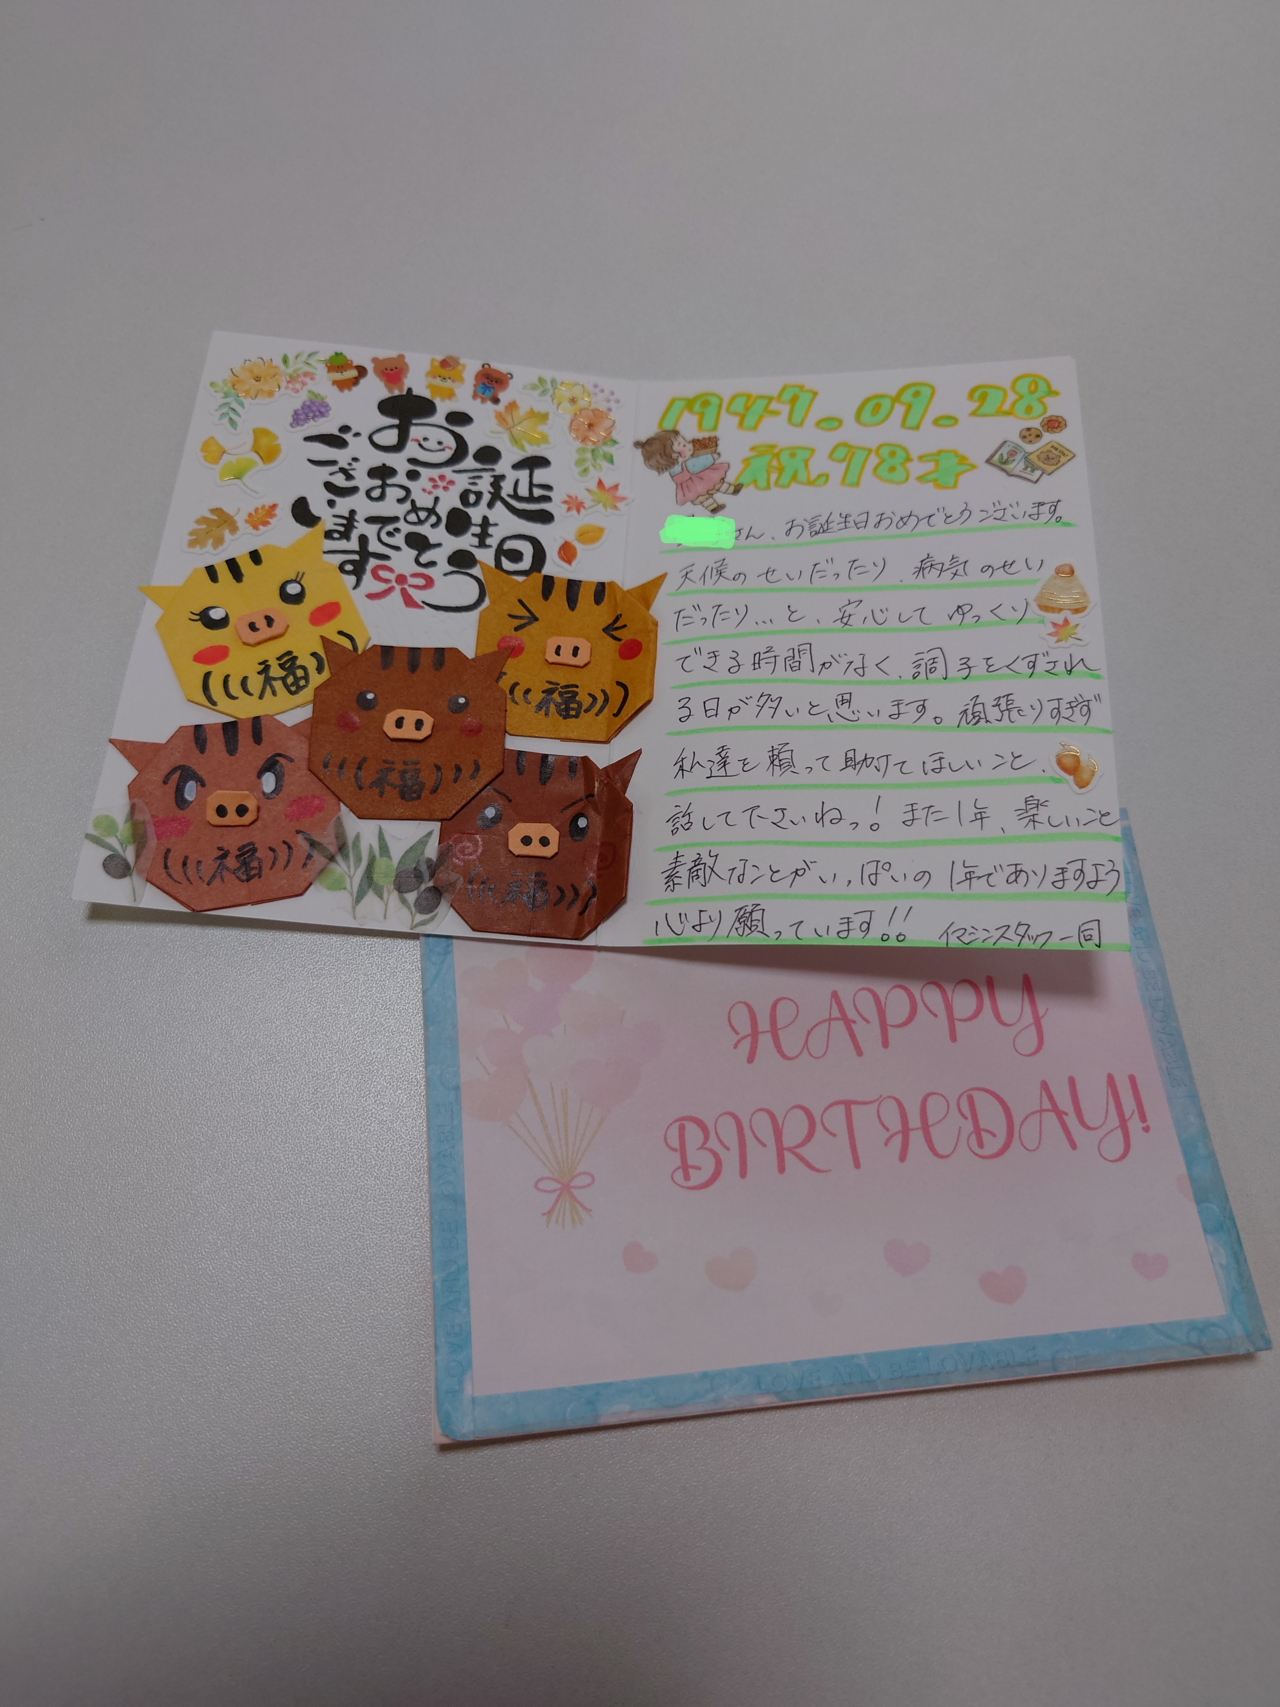 お誕生日
おめでとう
ございます
福
福
福
福
福
1947.09.28
祝.78才
さん、お誕生日おめでとうございます。
天候のせいだったり、病気のせい
だったり…と、安心してゆっくり
できる時間がなく、調子をくずされ
る日が多いと思います。頑張りすぎず
私達を頼って助けてほしいこと、
話して下さいねっ！また1年、楽しいこと
素敵なことがいっぱいの1年でありますよう
心より願っています!! イマジンスタッフ一同
HAPPY
BIRTHDAY!
LOVE AND BE LOVABLE
LOVE AND BE LOVABLE